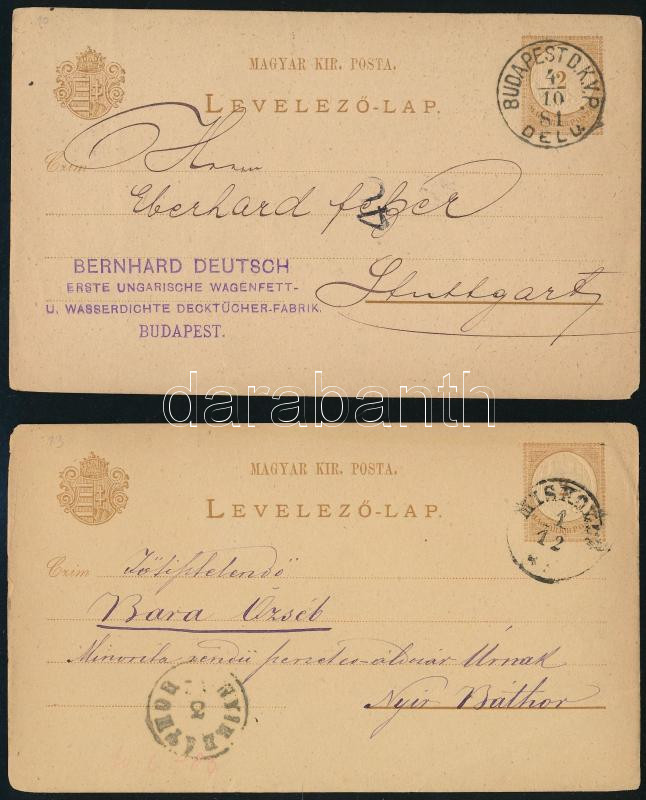 10
MAGYAR KIR. POSTA.
LEVELEZŐ-LAP.
BUDAPEST D.K.V.P.
10
81
DELU.
Czim
Herrn
Eberhard Fetzer
Stuttgart
BERNHARD DEUTSCH
ERSTE UNGARISCHE WAGENFETT-
U. WASSERDICHTE DECKTÜCHER-FABRIK.
BUDAPEST.
darabanth
13
MAGYAR KIR. POSTA.
LEVELEZŐ-LAP.
MISKOLCZ
1
12
Czim
Bara Özséb
Minorita rendü
Urnak
Nyir Báthor
NYIRBÁTHOR
3